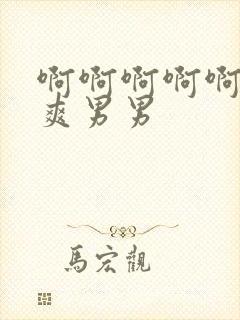 啊啊啊啊啊
爽男男
馬宏觀